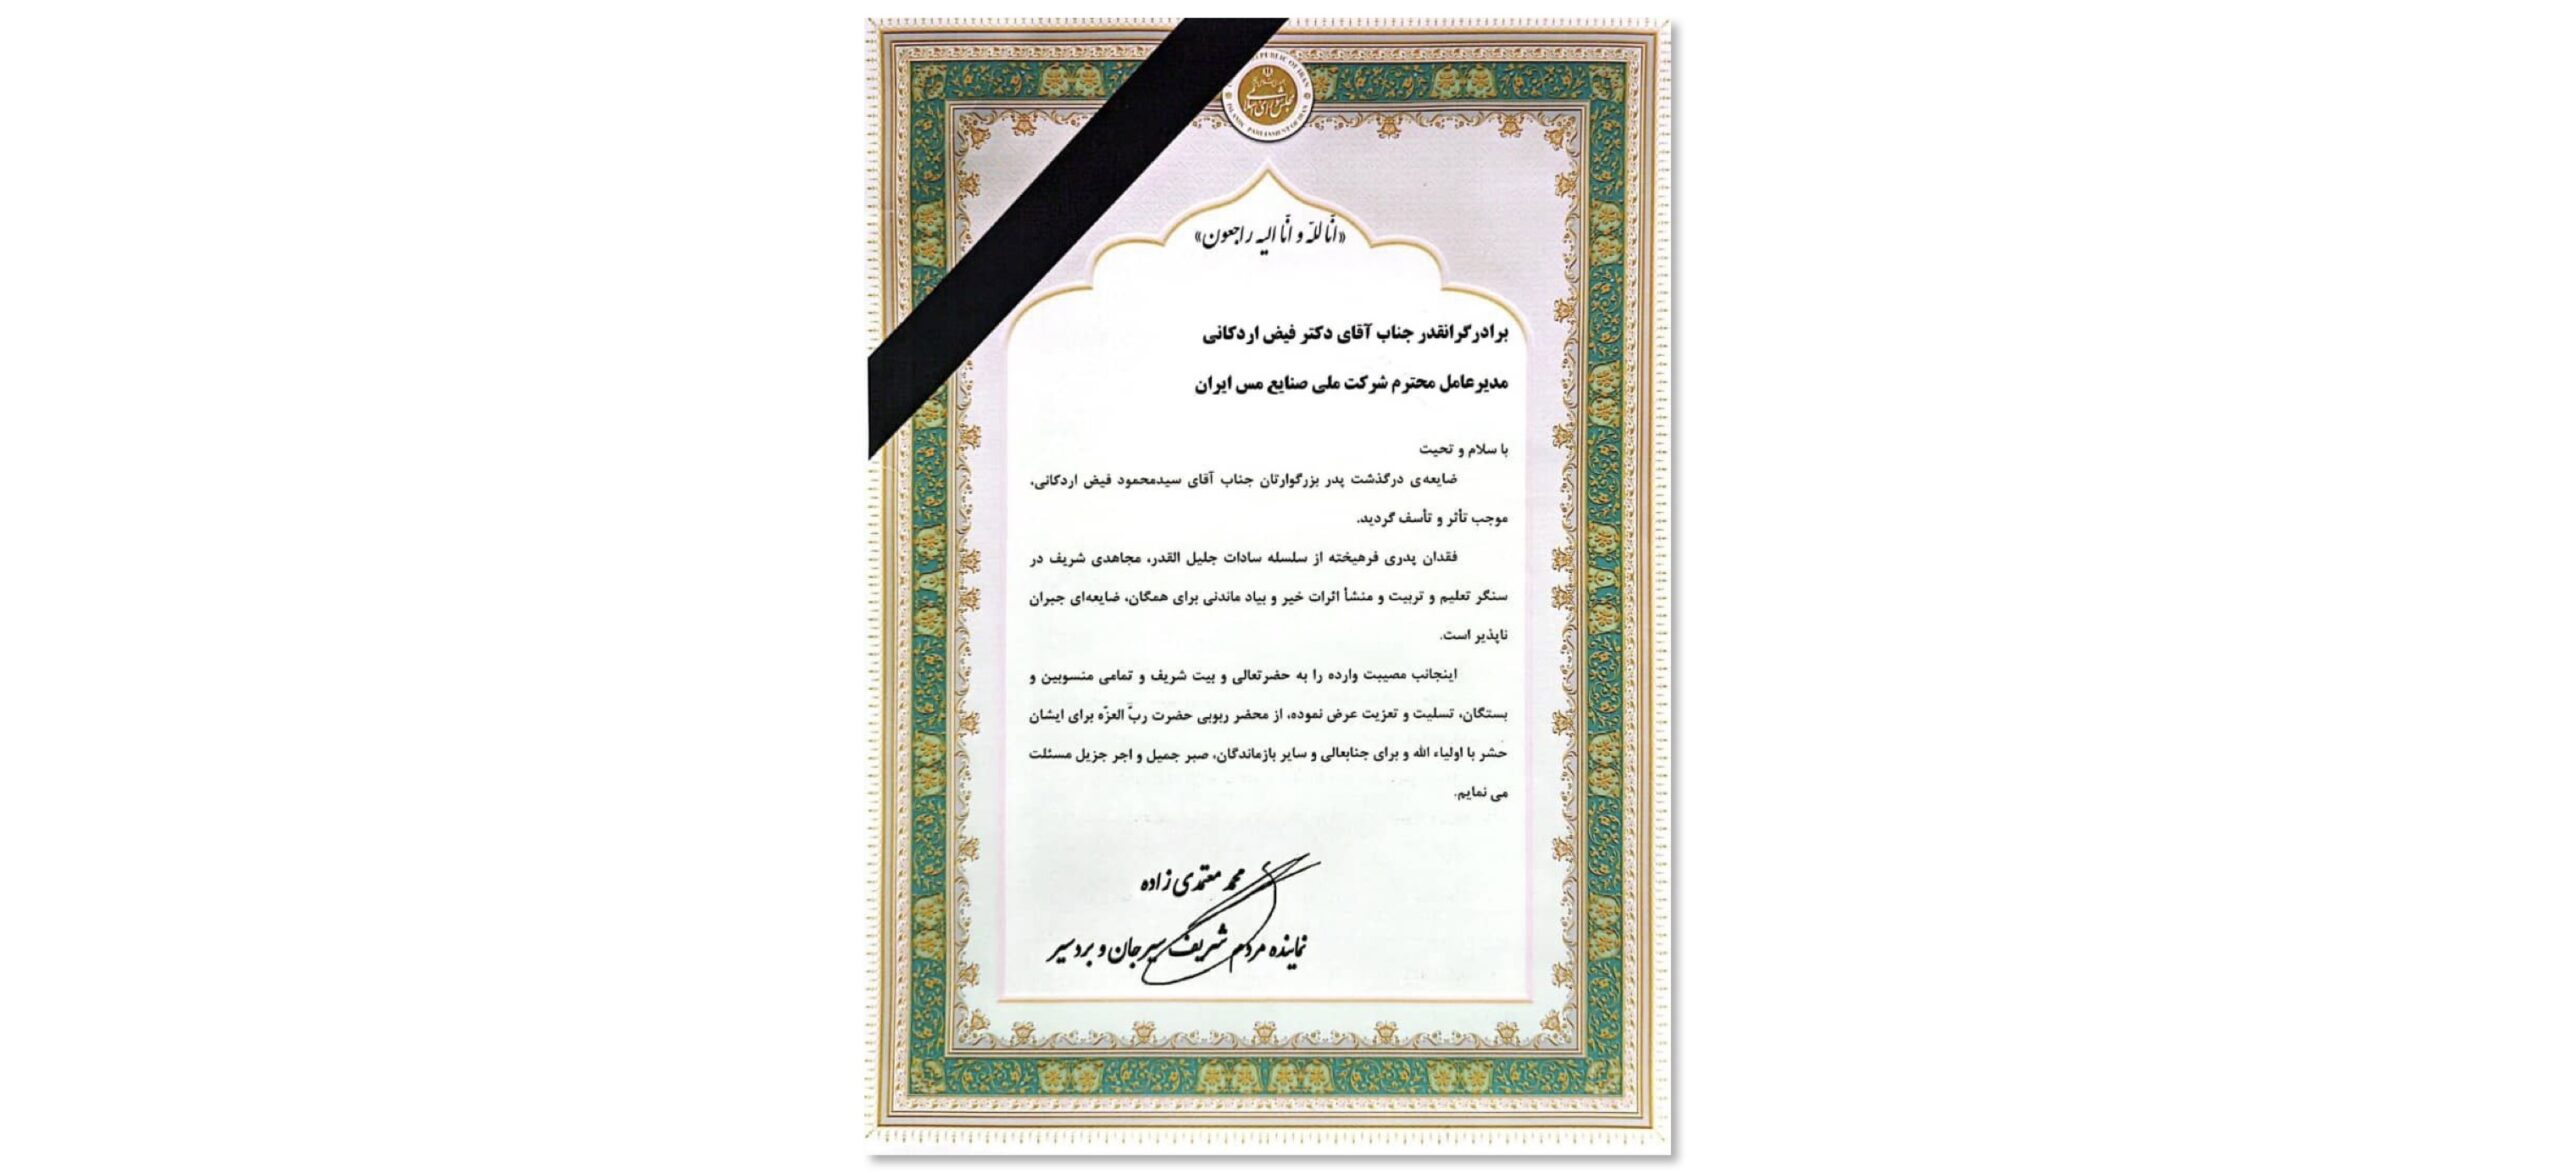 مجلس شورای اسلامی
ISLAMIC PARLIAMENT OF IRAN
PUBLIC OF IRAN
«انّا للّه و انّا الیه راجعون»
برادرگرانقدر جناب آقای دکتر فیض اردکانی
مدیرعامل محترم شرکت ملی صنایع مس ایران
با سلام و تحیت
ضایعه‌ی درگذشت پدر بزرگوارتان جناب آقای سیدمحمود فیض اردکانی،
موجب تأثر و تأسف گردید.
فقدان پدری فرهیخته از سلسله سادات جلیل القدر، مجاهدی شریف در
سنگر تعلیم و تربیت و منشأ اثرات خیر و بیاد ماندنی برای همگان، ضایعه‌ای جبران
ناپذیر است.
اینجانب مصیبت وارده را به حضرتعالی و بیت شریف و تمامی منسوبین و
بستگان، تسلیت و تعزیت عرض نموده، از محضر ربوبی حضرت ربّ العزّه برای ایشان
حشر با اولیاء الله و برای جنابعالی و سایر بازماندگان، صبر جمیل و اجر جزیل مسئلت
می نمایم.
محمد معتمدی زاده
نماینده مردم شریف سیرجان و بردسیر